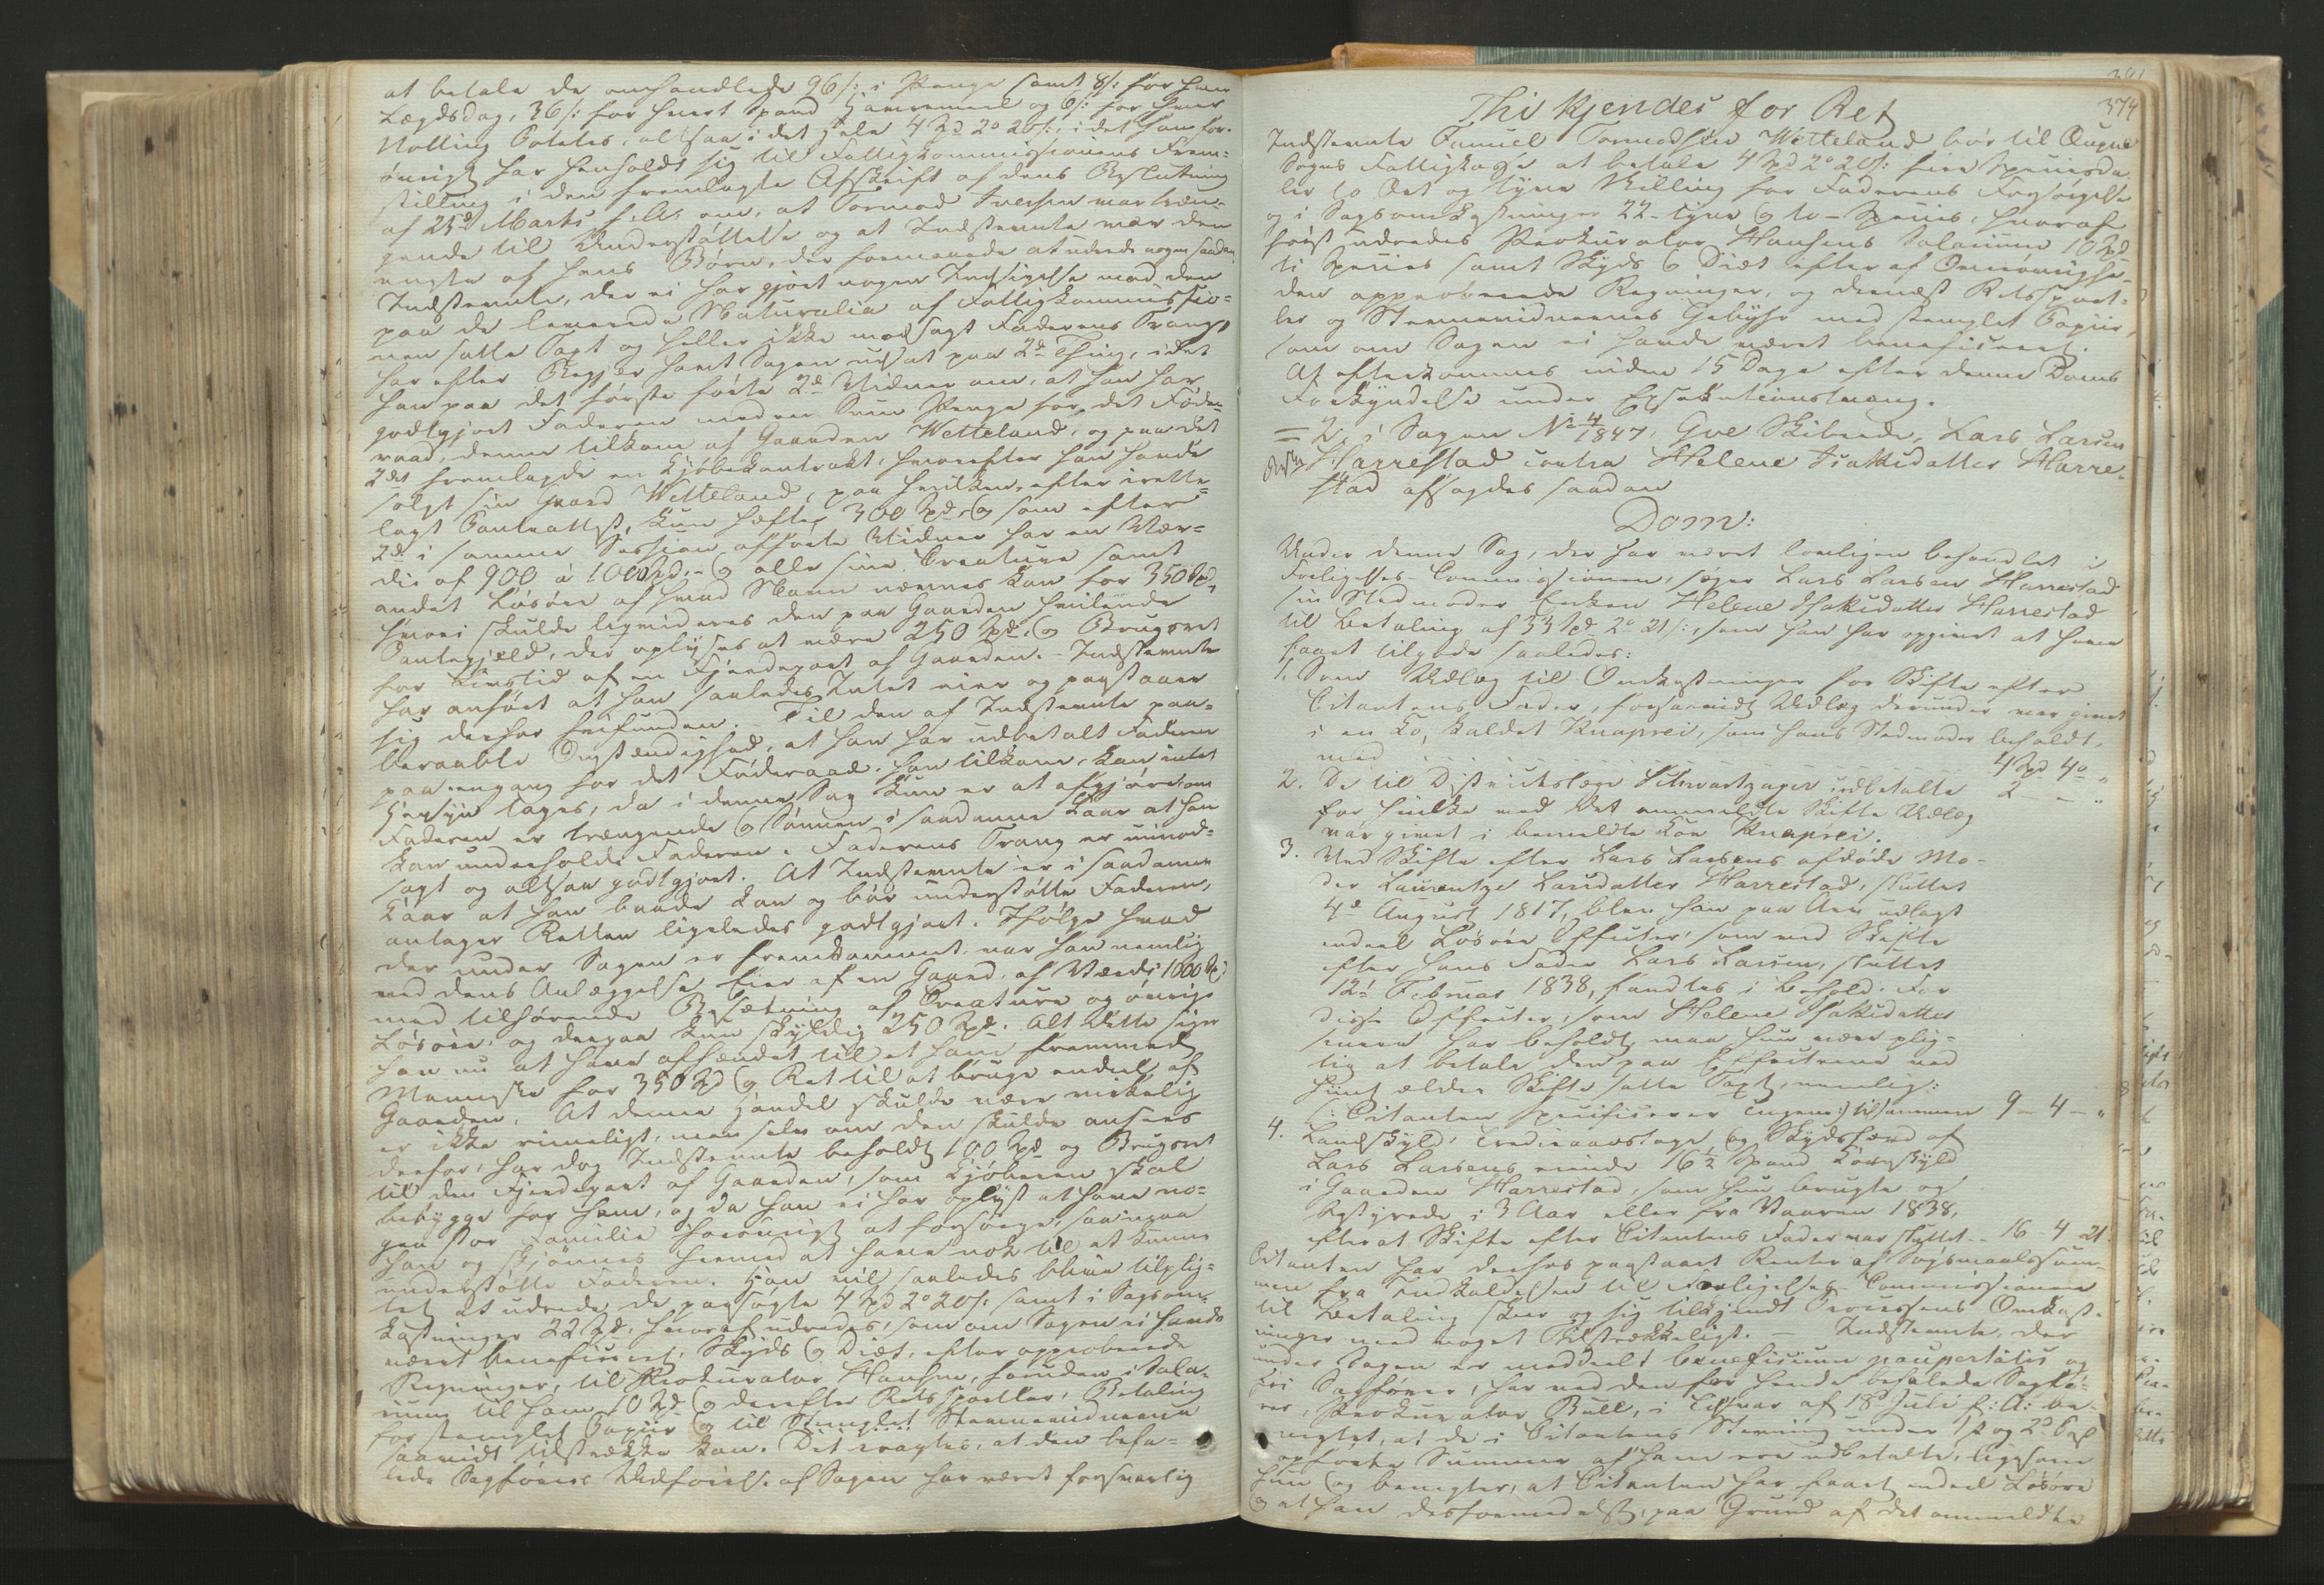 at betale de omhandlede 96 /: i Penge samt 8/: for hver
Lægdsdag, 36/: for hvert Spand Havremeel og 6/: for hver
Notting Potetes, altsaa i det Hele 4 Spd 2o 20/:, i det han for-
øvrigt har henholdt sig til Fattigkommissionens Frem-
stilling i den fremlagte Afskrift af dens Beslutning
af 25de Marts f: A: om, at Tormod Iversen var træn-
gende til Understøttelse og at Indstevnte var den
eneste af hans Børn, der formaaede at udrede nogen saadan
Indstevnte, der ei har gjort nogen Indsigelse mod den
paa de leverede Naturalia af Fattigkommissio-
nen satte Taxt og heller ikke modsagt Faderens Trang,
har efter Begjær havt Sagen udsat paa 2de Thing, idet
han paa det første førte 2de Vidner om, at han har
godtgjort Faderen med en Sum Penge for det Føde-
raad, denne tilkom af Gaarden Wetteland, og paa det
2det fremlagde en Kjøbekontrakt, hvorefter han havde
solgt sin Gaard Wetteland, paa hvilken, efter irette-
lagt Panteattest, kun hefter 300 Spd, og som efter
2de i samme Session afhørte Vidner har en Vær-
die af 900 à 1000 Spd. - og alle sine Creature samt
andet Løsøre af hvad Navn nævnes kan for 350 Spd,
hvori skulde liqvideres den paa Gaarden hvilende
Pantegjæld, der oplyses at være 250 Spd, og Brugsret
for Livstid af en Fjerdepart af Gaarden. - Indstevnte
har anført at han saaledes Intet eier og paastaaer
sig derfor frifunden. - Til den af Indstevnte paa-
beraabte Omstændighed, at han har udbetalt Faderen
paa eengang for det Føderaad, han tilkom, kan intet
Hensyn tages, da i denne Sag kun er at afgjøre, om
Faderen er trængende og Sønnen i saadanne Kaar at han
kan underholde Faderen. Faderens Trang er uimod-
sagt og altsaa godtgjort. At Indstevnte er i saadanne
Kaar at han baade kan og bør understøtte Faderen,
antager Retten ligeledes godtgjort. Ifølge hvad
der under Sagen er fremkommet, var han nemlig
ved dens Anlæggelse Eier af en Gaard af Værdi 1000 Spd
med tilhørende Besætning af Creature og øvrige
Løsøre, og derpaa kun skyldig 250 Spd. Alt dette siger
han nu at have afhændet til et ham fremmed
Menneske for 350 Spd og Ret til at bruge endeel af
Gaarden. At denne Handel skulde være virkelig
er ikke rimeligt, men selv om den skulde ansees
derfor, har dog Indstevnte beholdt 100 Spd og Brugsret
til den Fjerdepart af Gaarden, som Kjøberen skal
bebygge for ham, og da han ei har oplyst at have no-
gen stor Familie forøvrigt at forsørge, saa maa
han og skjønnes hermed at have nok til at kunne
understøtte Faderen. Han vil saaledes blive tilplig-
tet at udrede de paasøgte 4 Spd 2o 20/: samt i Sagsom-
kostninger 22 Spd, hvoraf udredes, som om Sagen ei havde
været beneficeret, Skyds og Diæt, efter approberede
Regninger, til Prokurator Hansen, foruden i Sala-
rium til ham 10 Spd og derefter Retssportler, Betaling
for stemplet Papiir og til Stevnevidnerne
saavidt tilstrække kan. Det bragtes, at den befa-
lede Sagførers Udførelse af Sagen har været forsvarlig
374
Thi kjendes for Ret
Indstevnte Samuel Tormodsen Wetteland bør til Ougne
Sogns Fattigkasse at betale 4 Spd 2o 20/: fire Speciesda-
ler to Ort og tyve Skilling for Faderens Forsørgelse
og i Sagsomkostninger 22 - tyve og to - Species, hvoraf
først udredes Prokurator Hansens Salarium 10 Spd
ti Species samt Skyds og Diæt efter af Øvrighe-
den approberede Regninger, og dernæst Retssport-
ler og Stevnevidnernes Gebyhr med stemplet Papiir,
som om Sagen ei havde været beneficeret.
At efterkommes inden 15 Dage efter denne Doms
Forkyndelse under Exsekutionstvang.
= 2. i Sagen No 4/1847, Gve Skibrede, Lars Larsen
Harrestad contra Helene Isaksdatter Harre-
stad afsagdes saadan
Dom:
Under denne Sag, der har været lovligen behandlet i
Forligelses-Commissionen, søger Lars Larsen Harrestad
sin Stedmoder Enken Helene Isaksdatter Harrestad
til Betaling af 33 Spd 2o 21/:, som han har opgivet at have
faaet tilgode saaledes:
1. Som Udlæg til Omkostninger for Skifte efter
Citantens Fader, forsaavidt Udlæg derunder var givet
i en Ko, kaldet Knaprei, som hans Stedmoder beholdt,
med . . . . 4 Spd 4o "
2. De til Distriktslæge Schwartzager udbetalte 2 - "
for hvilke ved det ommeldte Skifte Udlæg
var givet i bemeldte Koe Knaprei.
3. Ved Skifte efter Lars Larsens afdøde Mo-
der Laurentze Larsdatter Harrestad, sluttet
4de August 1817, blev ham paa Arv udlagt
endeel Løsøre Effecter, som ved Skifte
efter hans Fader Lars Larsen, sluttet
12te Februar 1838, fandtes i Behold. For
disse Effecter, som Helene Isaksdatter
senere har beholdt, maa hun være plig-
tig at betale den paa Effecterne ved
hiint ældre Skifte satte Taxt, nemlig:
(: Citanten specificerer Tingene :) tilsammen 9 - 4 - "
4. Landskyld, Trediaarstage og Skydsfærd af
Lars Larsens eiende 16½ Spand Landskyld
i Gaarden Harrestad, som hun brugte og
bestyrede i 3 Aar eller fra Vaaren 1838,
efterat Skifte efter Citantens Fader var sluttet - 16 - 4 21.
Citanten har derhos paastaaet Renter af Søgsmaalssum-
men fra Indkaldelsen til Forligelses-Commissionen
til Betaling skeer og sig tilkjendt Processens Omkost-
ninger med noget Tilstrækkeligt. - Indstevnte, der
under Sagen er meddeelt beneficium paupertatis og
fri Sagfører, har ved den for hende befalede Sagfø-
rer, Prokurator Bull, i Tilsvar af 18de Juli f: A: be-
negtet, at de i Citantens Stevning under 1st og 2d Post
opførte Summer af ham ere udbetalte, ligesom
hun og benegter, at Citanten har faaet endeel Løsøre
og at han desformedelst, paa Grund af det ommeldte